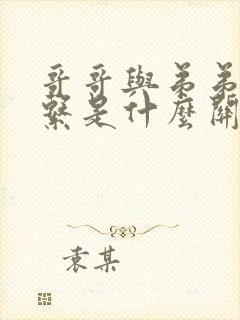 哥哥與弟弟
繫是什麼關
袁某